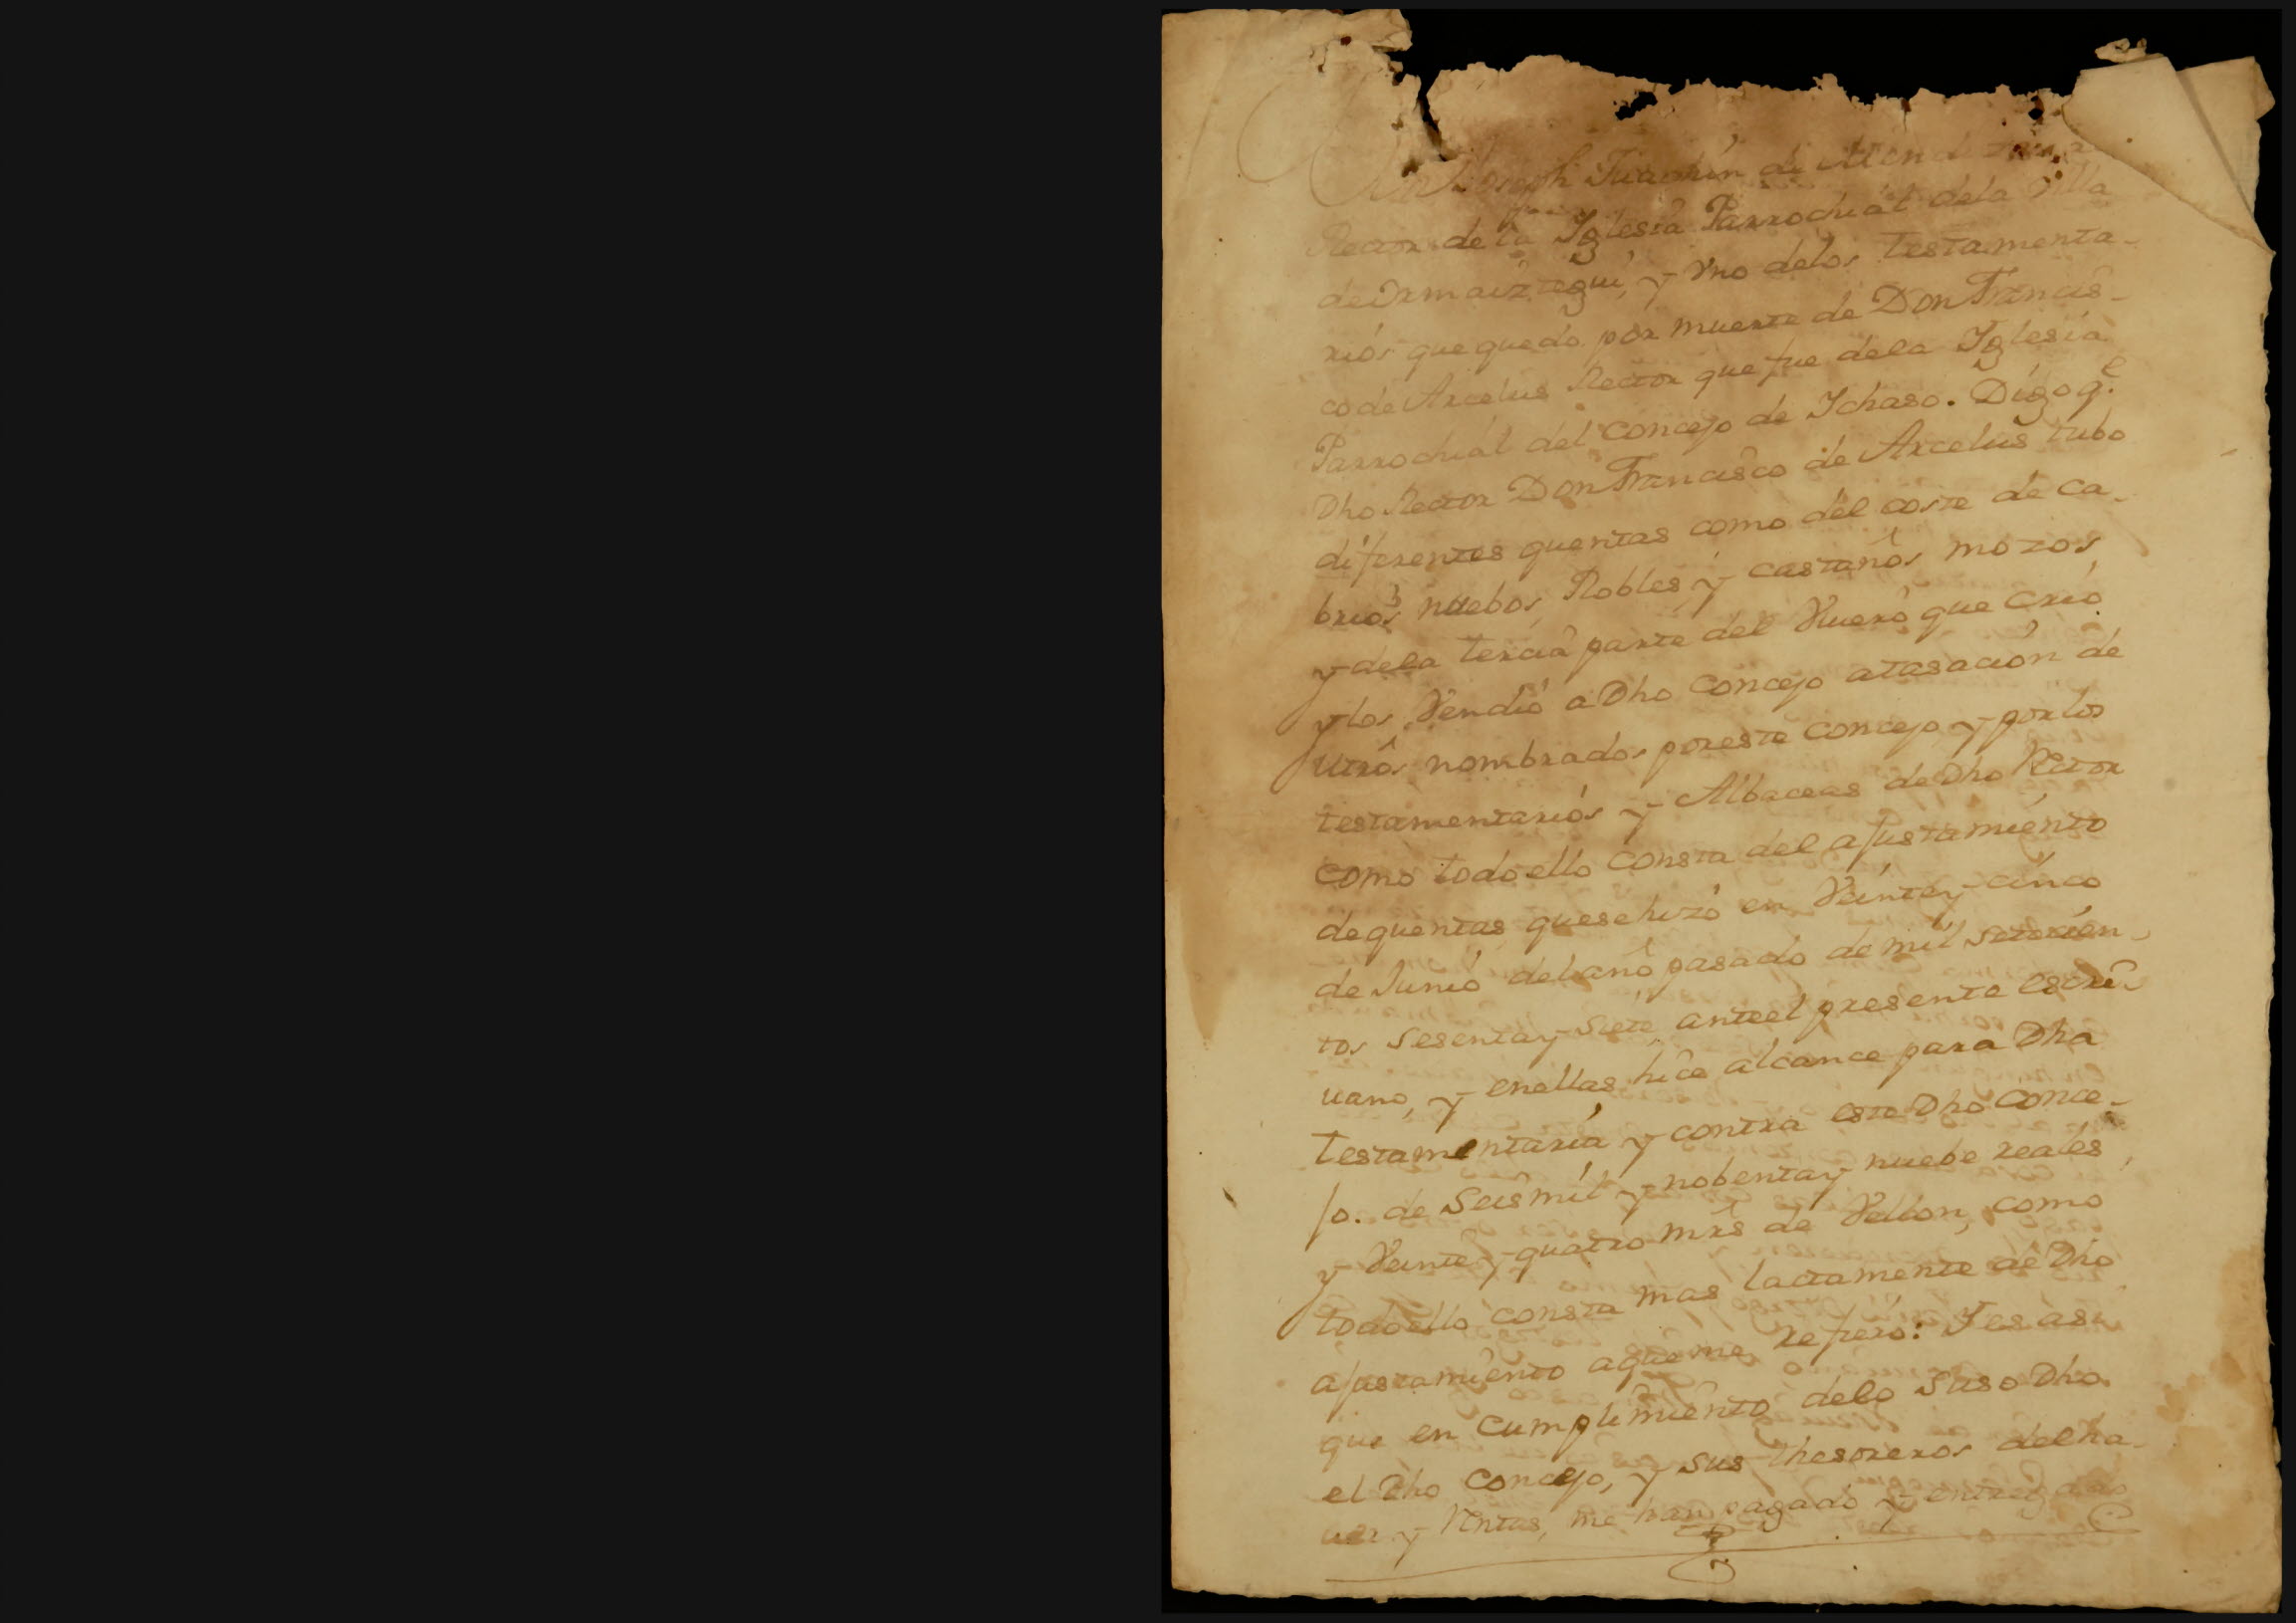 Don Joseph Juachin de Mendizaual
Rector de la Iglesia Parrochial dela Villa
de Ormaiztegui, y Vno delos testamenta-
rios que quedo por muerte de Don Francis-
co de Arcelus Rector que fue dela Iglesia
Parrochial del concejo de Ichaso. Digo q.e
Dho Rector Don Francisco de Arcelus tubo
diferentes quentas como del coste de ca-
brios nuebos, Robles y castaños mozos,
y dela tercia parte del Viuero que crio
y los Vendio a Dho concejo atasacion de
ofos nombrados poreste concejo y por los
testamentarios y Albaceas de Dho Rector
como todo ello consta del ajustamiento
de quentas que se hizo en Veintey cinco
de Junio del año pasado de mil setecien-
tos sesentay siete, anteel presente escri-
uano, y enellas hice alcance para Dha
testamentaria y contra este Dho conce-
jo. de Seismil y nobentay nuebe reales,
y Veintey quatro mrs de Vellon, como
todo ello consta mas lactamente de Dho
ajustamiento aque me refiero: Y es asi
que en cumplimiento delo Suso Dho
el Dho concejo, y sus thesoreros delha-
uer y Rentas, me han pagado y entregado